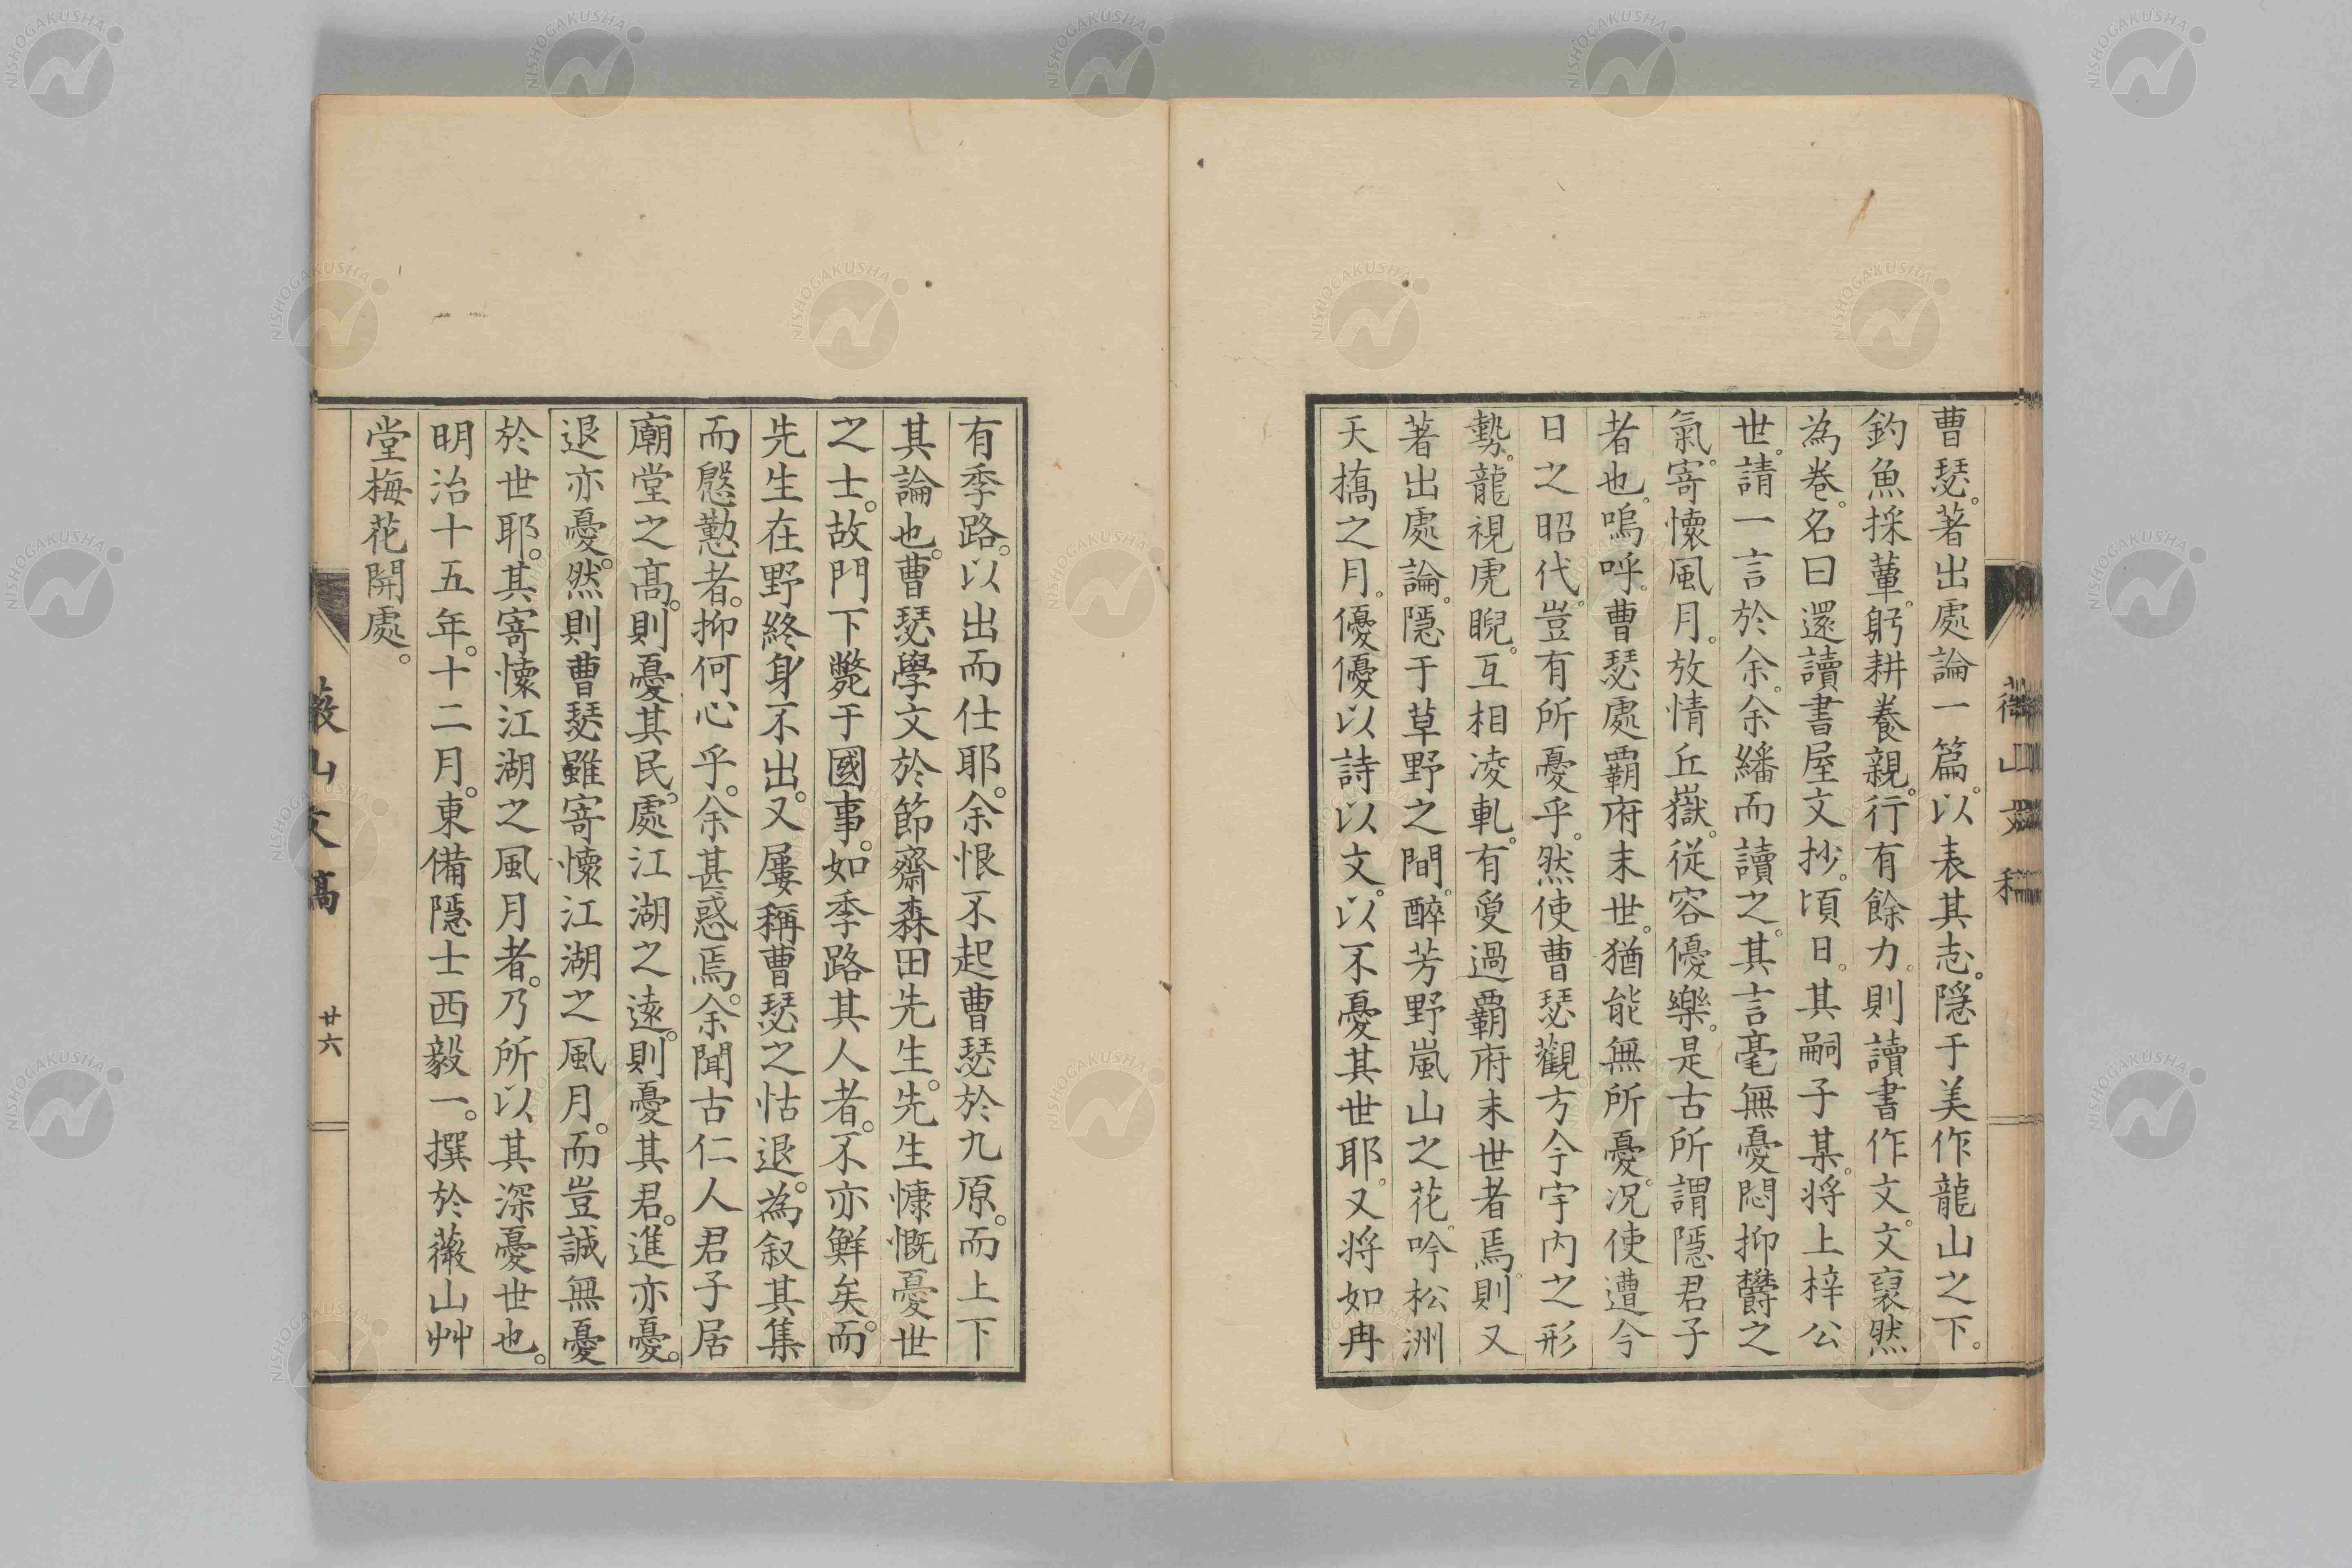 曹瑟。著出處論一篇。以表其志。隱于美作龍山之下。
釣魚採蕈。躬耕養親。行有餘力。則讀書作文。文裒然
為卷。名曰還讀書屋文抄。頃日。其嗣子某。將上梓公
世。請一言於余。余繙而讀之。其言毫無憂悶抑欝之
氣。寄懷風月。放情丘嶽。從容優樂。是古所謂隱君子
者也。嗚呼。曹瑟處覇府末世。猶能無所憂。況使遭今
日之昭代。豈有所憂乎。然使曹瑟觀方今宇內之形
勢。龍視虎睨。互相凌軋。有叟過覇府末世者焉。則又
著出處論。隱于草野之間。醉芳野嵐山之花。吟松洲
天橋之月。優優以詩以文。以不憂其世耶。又將如冉
有季路。以出而仕耶。余恨不起曹瑟於九原。而上下
其論也。曹瑟學文於節齋森田先生。先生慷慨憂世
之士。故門下斃于國事。如季路其人者。不亦鮮矣。而
先生在野終身不出。又屢稱曹瑟之恬退。為叙其集
而慇懃者。抑何心乎。余甚惑焉。余聞古仁人君子居
廟堂之高。則憂其民。處江湖之遠。則憂其君。進亦憂。
退亦憂。然則曹瑟雖寄懷江湖之風月。而豈誠無憂
於世耶。其寄懷江湖之風月者。乃所以其深憂世也。
明治十五年。十二月。東備隱士西毅一。撰於薇山艸
堂梅花開處。
薇山文稿
廿六
NISHOGAKUSHA